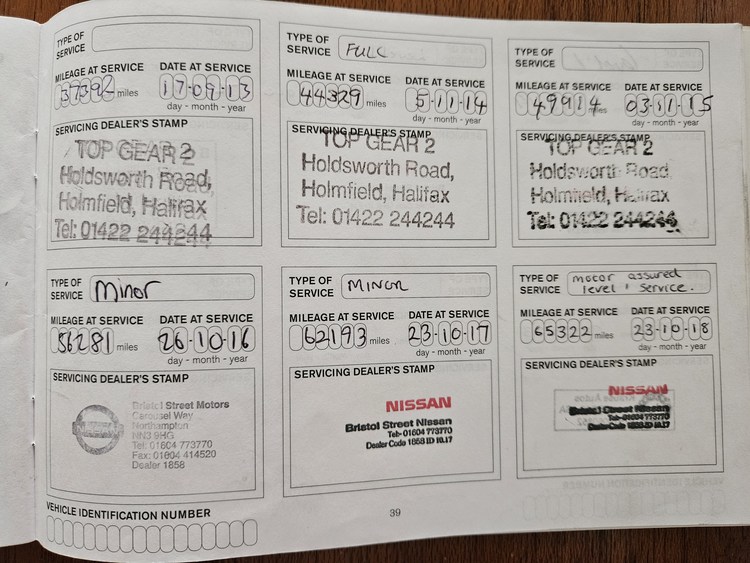 TYPE OF SERVICE
MILEAGE AT SERVICE DATE AT SERVICE
37392 miles 17-09-13
day - month - year
SERVICING DEALER'S STAMP
TOP GEAR 2
Holdsworth Road,
Holmfield, Halifax
Tel: 01422 244244
TYPE OF SERVICE FULL
MILEAGE AT SERVICE DATE AT SERVICE
44329 miles 5-11-14
day - month - year
SERVICING DEALER'S STAMP
TOP GEAR 2
Holdsworth Road,
Holmfield, Halifax
Tel: 01422 244244
TYPE OF SERVICE
MILEAGE AT SERVICE DATE AT SERVICE
49914 miles 03-11-15
day - month - year
SERVICING DEALER'S STAMP
TOP GEAR 2
Holdsworth Road
Holmfield, Halifax
Tel: 01422 244244
TYPE OF SERVICE Minor
MILEAGE AT SERVICE DATE AT SERVICE
56281 miles 26-10-16
day - month - year
SERVICING DEALER'S STAMP
NISSAN
Bristol Street Motors
Carousel Way
Northampton
NN3 9HG
Tel: 01604 773770
Fax: 01604 414520
Dealer 1858
TYPE OF SERVICE MINOR
MILEAGE AT SERVICE DATE AT SERVICE
62193 miles 23-10-17
day - month - year
SERVICING DEALER'S STAMP
NISSAN
Bristol Street Nissan
Tel- 01604 773770
Dealer Code 1858 ID 10.17
TYPE OF SERVICE motor assured
level 1 service.
MILEAGE AT SERVICE DATE AT SERVICE
65322 miles 23-10-18
day - month - year
SERVICING DEALER'S STAMP
NISSAN
Bristol Street Nissan
Tel- 01604 773770
Dealer Code 1858 ID 10.17
VEHICLE IDENTIFICATION NUMBER
39